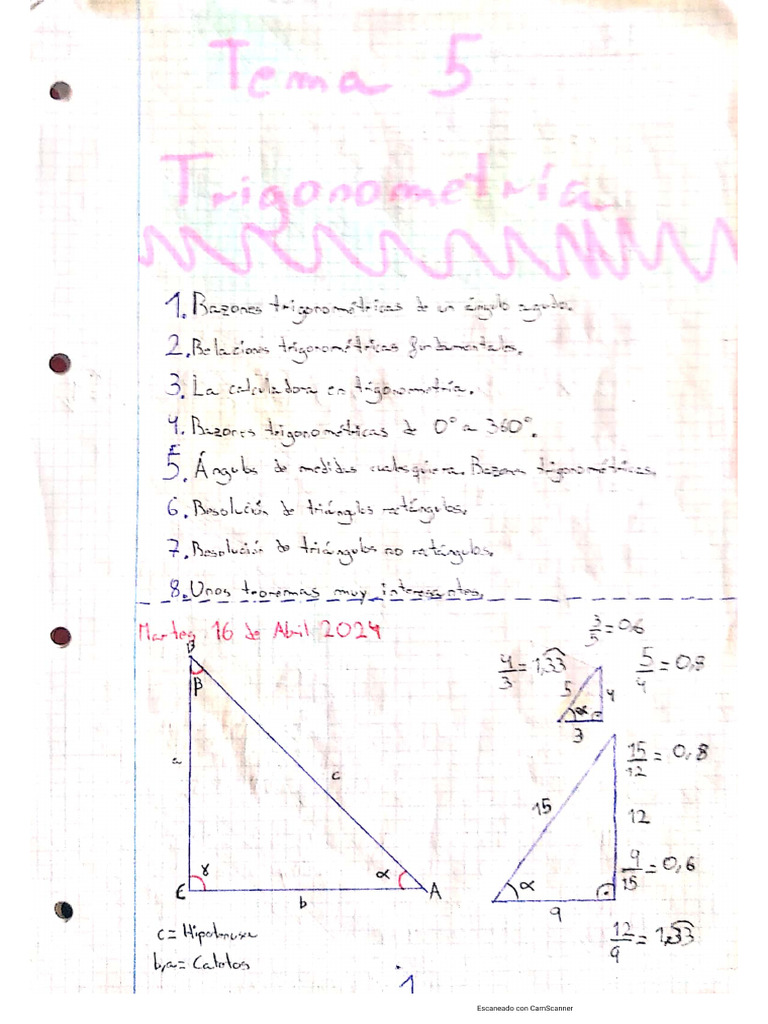 Tema 5
Trigonometría
1. Razones trigonométricas de un ángulo agudo.
2. Relaciones trigonométricas fundamentales.
3. La calculadora en trigonometría.
4. Razones trigonométricas de 0° a 360°.
5. Ángulos de medidas cualesquiera. Razones trigonométricas.
6. Resolución de triángulos rectángulos.
7. Resolución de triángulos no rectángulos.
8. Unos teoremas muy interesantes.
Martes 16 de Abril 2024
3/5 = 0,6
4/3 = 1,33
5/4 = 0,8
5
4
α
3
B
β
a
c
γ
α
C
b
A
15/12 = 0,8
15
12
9/15 = 0,6
α
9
12/9 = 1,33
c = Hipotenusa
b,a = Catetos
1
Escaneado con CamScanner